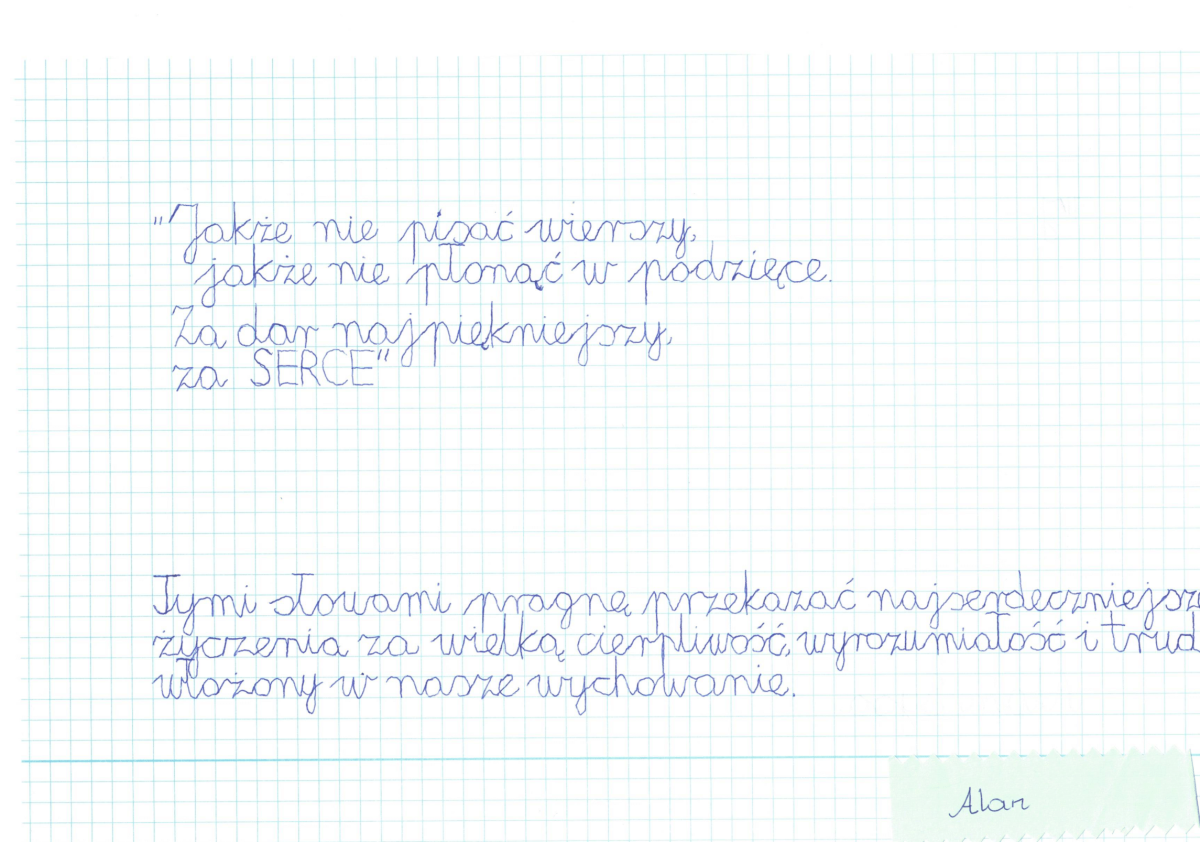 "Jakże nie pisać wierszy,
jakże nie płonąć w podzięce.
Za dar najpiękniejszy,
za SERCE"
Tymi słowami pragnę przekazać najserdeczniejsze
życzenia za wielką cierpliwość, wyrozumiałość i trud
włożony w nasze wychowanie.
Alan